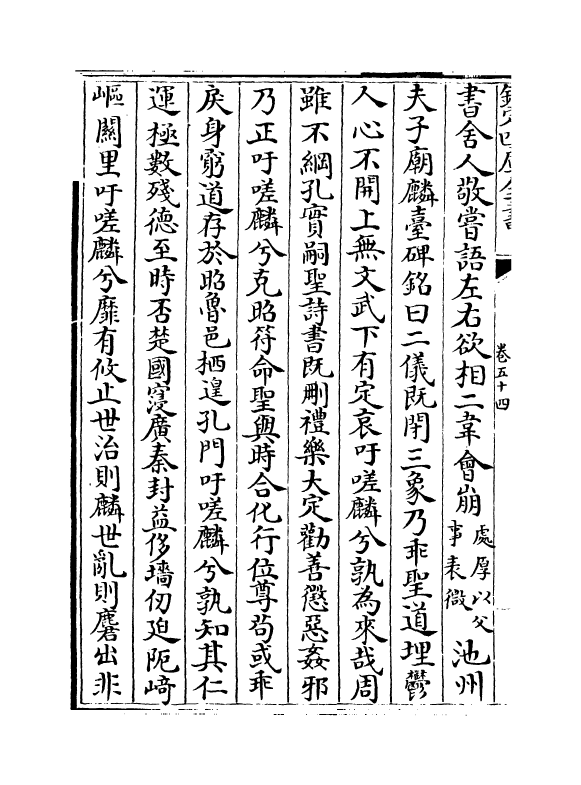 欽定四庫全書
卷五十四
書舍人敬嘗語左右欲相二韋會崩處厚以父事表微池州
夫子廟麟臺碑銘曰二儀既閉三象乃乖聖道埋鬱
人心不開上無文武下有定哀吁嗟麟兮孰為來哉周
雖不綱孔實嗣聖詩書既刪禮樂大定勸善懲惡姦邪
乃正吁嗟麟兮克昭符命聖與時合化行位尊茍或乖
戾身窮道存於昭魯邑栖遑孔門吁嗟麟兮孰知其仁
運極數殘德至時否楚國寖廣秦封益侈墻仞廹阨﨑
嶇闕里吁嗟麟兮靡有攸止世治則麟世亂則麏出非